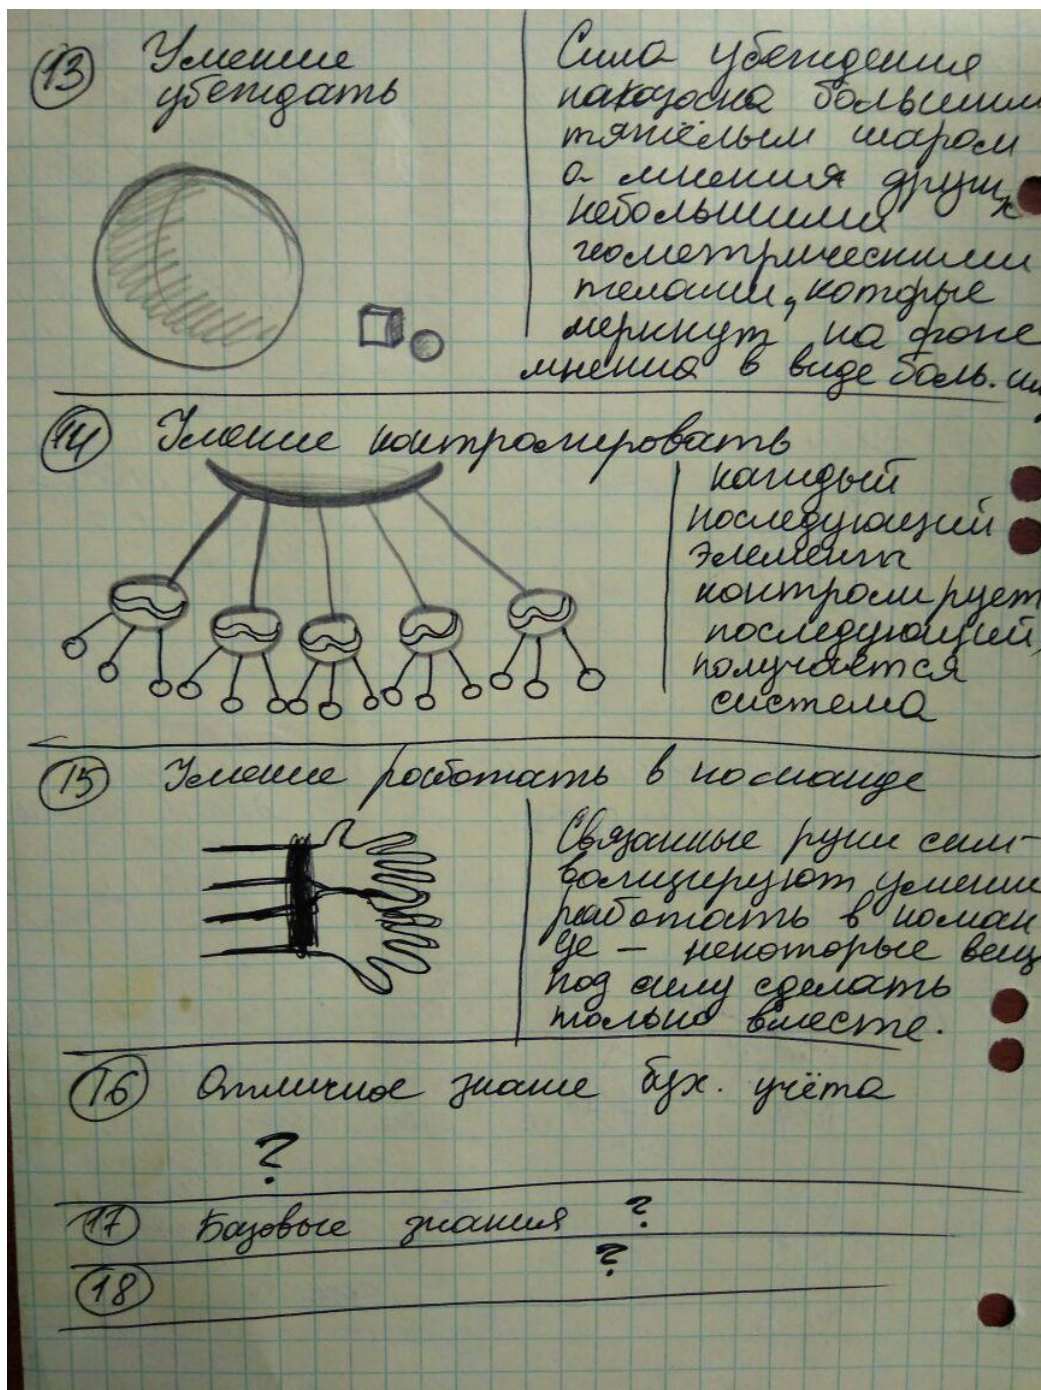 13 Умение
убеждать
Сила убеждения
показана большим
тяжёлым шаром
а мнения других
небольшими
геометрическими
телами, которые
меркнут на фоне
мнения в виде боль.
14 Умение контролировать
каждый
последующий
элемент
контролирует
последующий,
получается
система
15 Умение работать в команде
Связанные руки сим-
волизируют умение
работать в коман
де – некоторые вещ
под силу сделать
только вместе.
16 Отличное знание бух. учёта
?
17 Базовые знания ?
18 ?